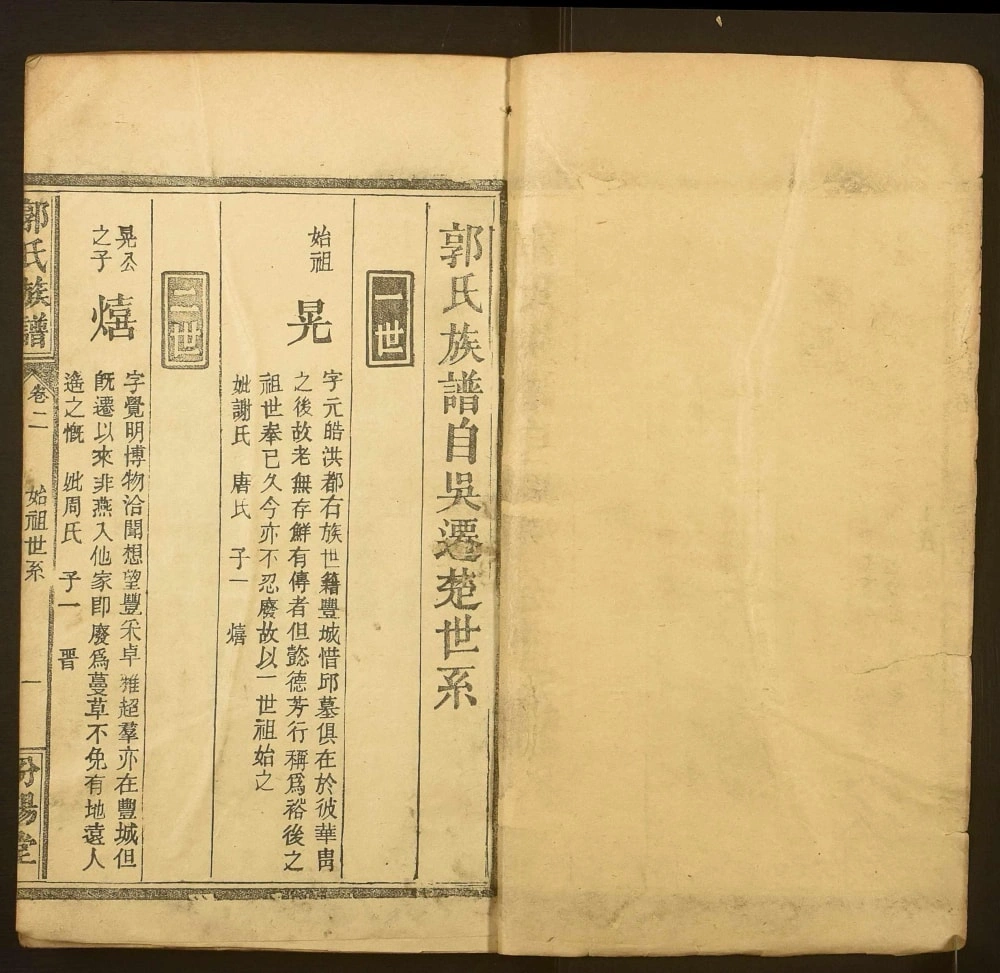 郭氏族譜自吳遷楚世系
一世
始祖
晃
字元皓洪都右族世籍豐城惜邱墓俱在於彼華冑
之後故老無存鮮有傳者但懿德芳行稱爲裕後之
祖世奉已久今亦不忍廢故以一世祖始之
妣謝氏 唐氏 子一 熺
二世
晃公
之子
熺
字覺明博物洽聞想望豐采卓雅超羣亦在豐城但
旣遷以來非燕入他家即廢爲蔓草不免有地遠人
遙之慨 妣周氏 子一 晋
郭氏族譜
卷二
始祖世系
一
汾陽堂